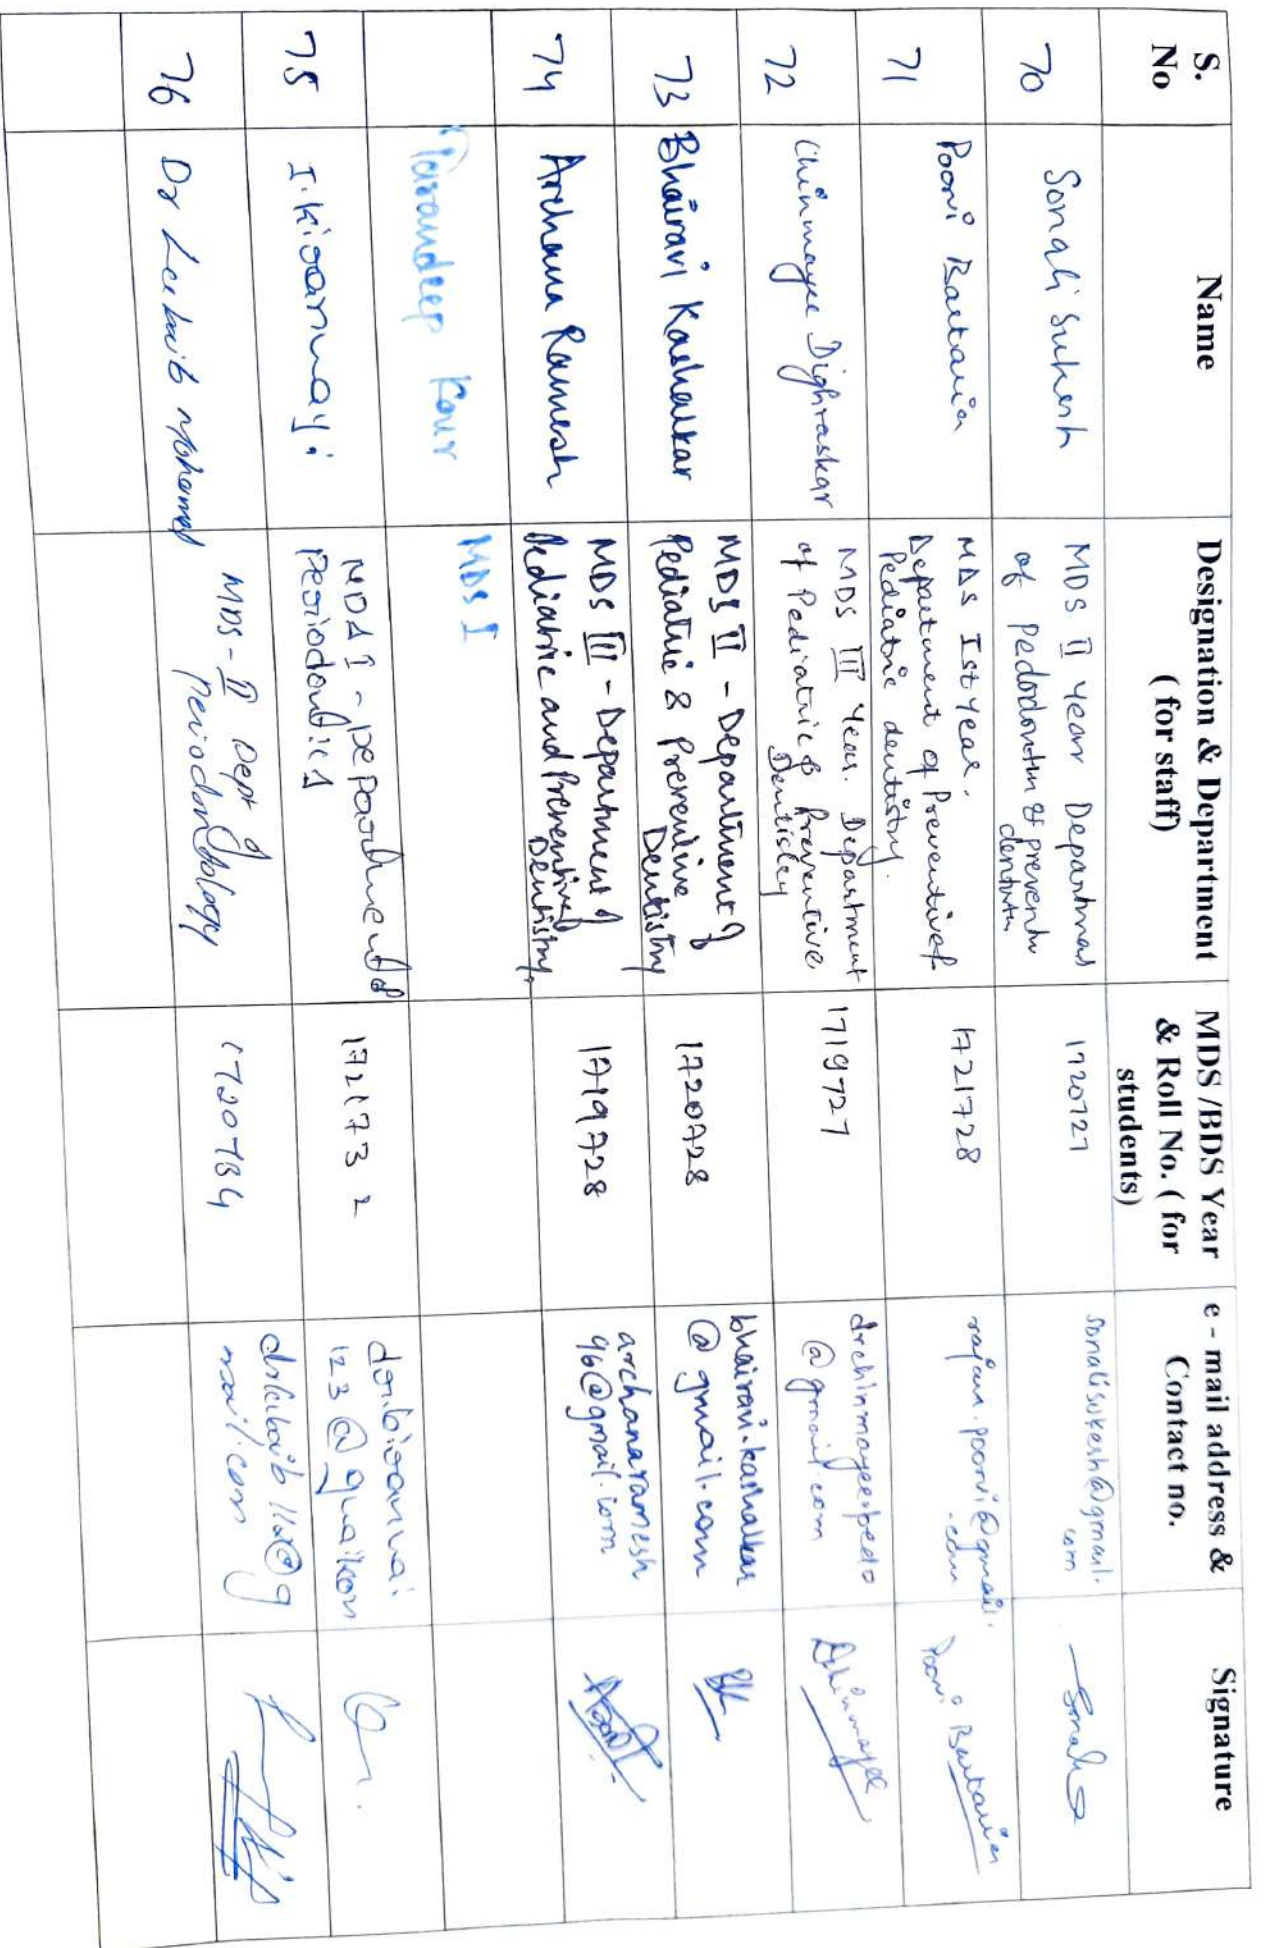 S.
No
Name
Designation & Department
( for staff)
MDS /BDS Year
& Roll No. ( for
students)
e - mail address &
Contact no.
Signature
70
Sonali Sukesh
MDS II year Department
of Pedodontin & preventiv
dentistry
1720727
sonalisukesh@gmail.
com
71
Poorvi Bastania
MDS Ist year.
Department of Preventive &
Pediatric dentistry.
1721728
.com
Poorvi Bastania
72
Chinmayee Dighraskar
MDS III Year. Department
of Pediatric & Preventive
Dentistry
1719727
drchinmayeepedo
@gmail.com
Chinmayee
73
Bhairavi Kashalkar
MDS II - Department of
Pediatric & Preventive
Dentistry
1720728
bhairavi.kashalkar
@gmail.com
BK
74
Archana Ramesh
MDS III - Department of
Pediatric and Preventive
Dentistry.
1719728
archanaramesh
96@gmail.com
Tarandeep Kour
MDS I
75
MDS I - Department of
Periodontics
1721732
123@gmailcom
76
Dr Lekaib Mohamed
MDS - II Dept of
Periodontology
1720734
mail.com